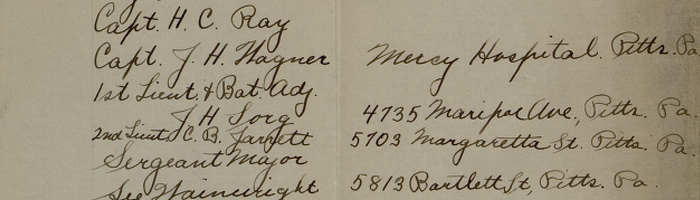 Capt. H. C. Ray
Capt. J. H. Wagner Mercy Hospital. Pitts. Pa.
1st Lieut. & Bat. Adj.
J H Sorg 4735 Maripoe Ave., Pitts. Pa.
2nd Lieut. C. B. Jarrett 5703 Margaretta St. Pitts. Pa.
Sergeant Major
Wainwright 5813 Bartlett St, Pitts. Pa.